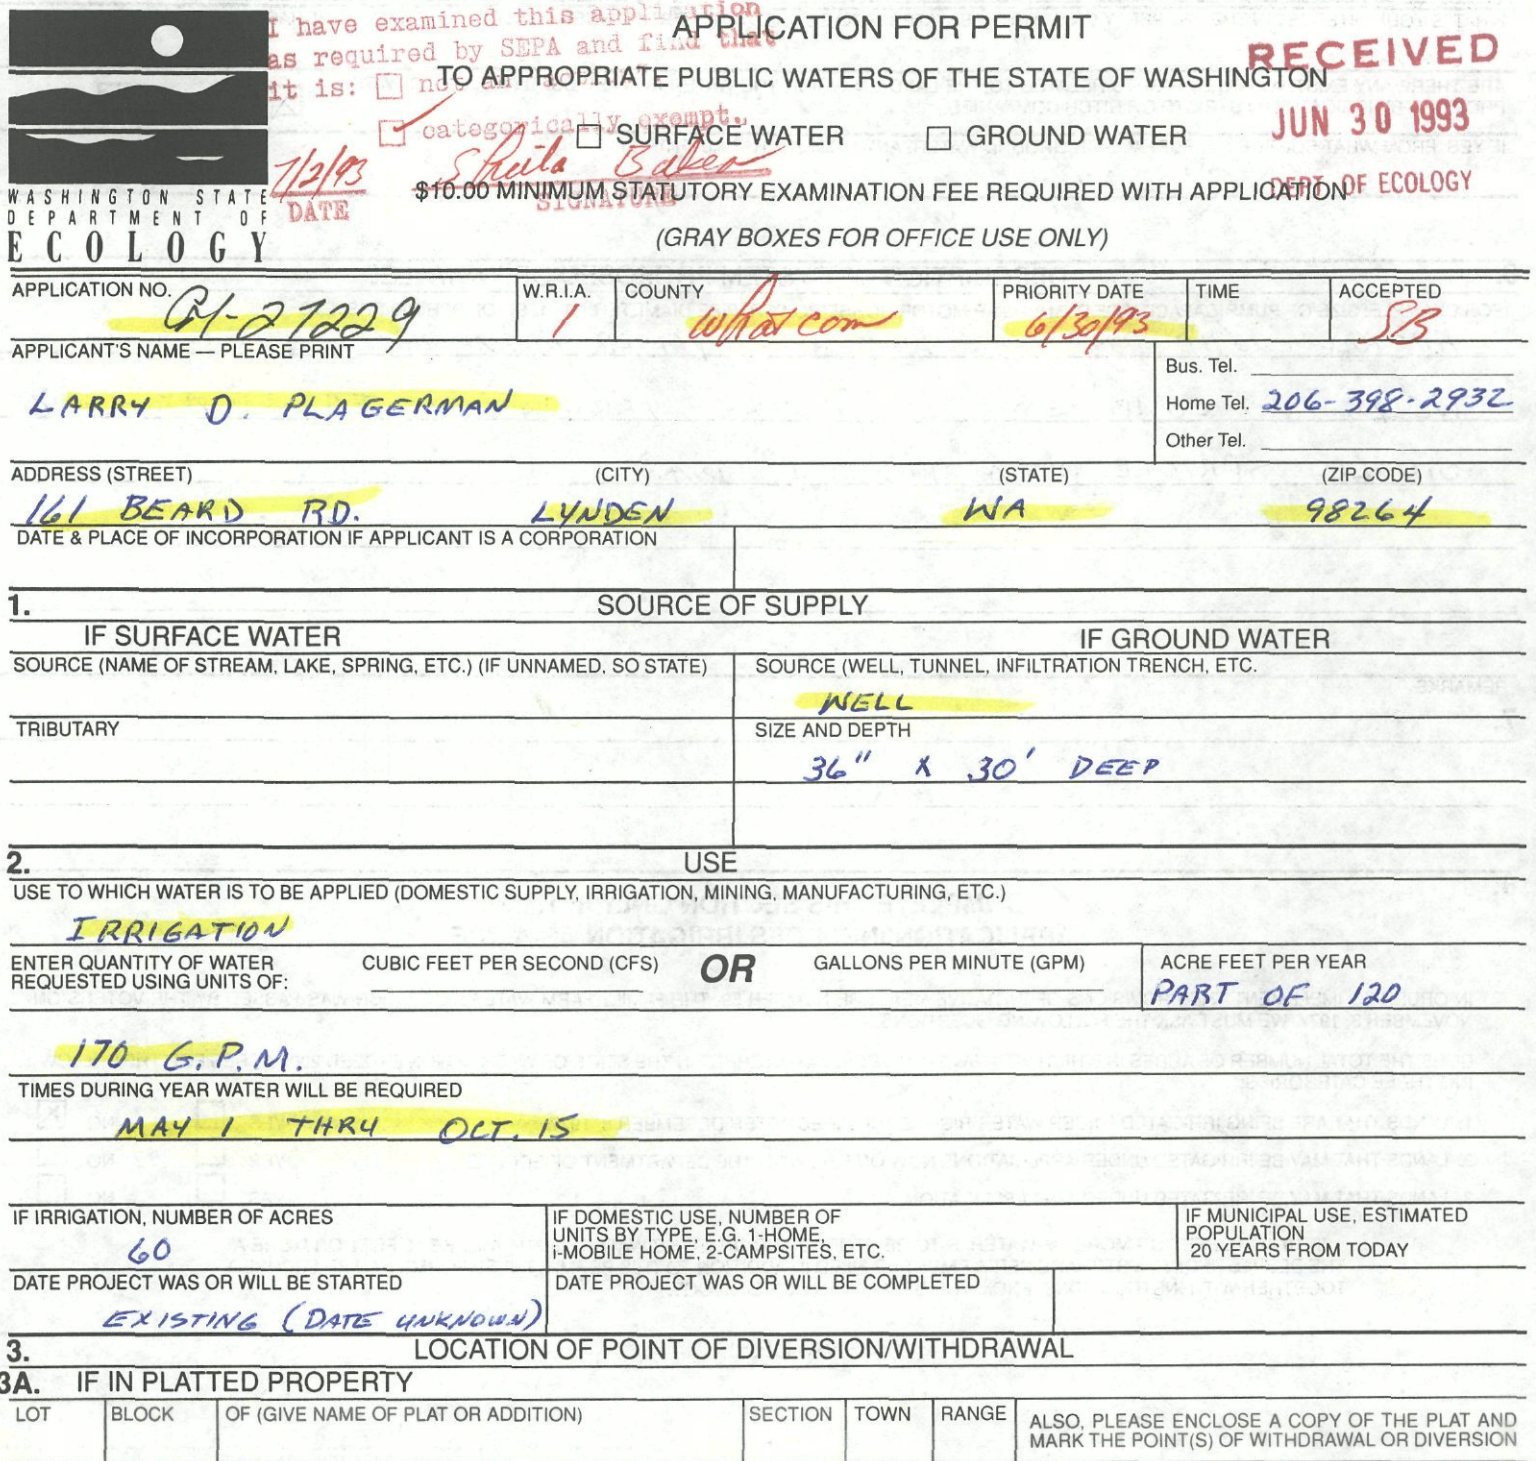 I have examined this application
as required by SEPA and find that
it is: not an
categorically exempt.
7/2/93
DATE
Sheila Baker
SIGNATURE
WASHINGTON STATE
DEPARTMENT OF
ECOLOGY
APPLICATION FOR PERMIT
TO APPROPRIATE PUBLIC WATERS OF THE STATE OF WASHINGTON
SURFACE WATER GROUND WATER
$10.00 MINIMUM STATUTORY EXAMINATION FEE REQUIRED WITH APPLICATION
(GRAY BOXES FOR OFFICE USE ONLY)
RECEIVED
JUN 30 1993
DEPT. OF ECOLOGY
APPLICATION NO. W.R.I.A. COUNTY PRIORITY DATE TIME ACCEPTED
G1-27229 1 Whatcom 6/30/93 SB
APPLICANT'S NAME — PLEASE PRINT
LARRY D. PLAGERMAN
Bus. Tel.
Home Tel. 206-398-2932
Other Tel.
ADDRESS (STREET) (CITY) (STATE) (ZIP CODE)
161 BEARD RD. LYNDEN WA 98264
DATE & PLACE OF INCORPORATION IF APPLICANT IS A CORPORATION
1. SOURCE OF SUPPLY
IF SURFACE WATER IF GROUND WATER
SOURCE (NAME OF STREAM, LAKE, SPRING, ETC.) (IF UNNAMED, SO STATE) SOURCE (WELL, TUNNEL, INFILTRATION TRENCH, ETC.
WELL
TRIBUTARY SIZE AND DEPTH
36" X 30' DEEP
2. USE
USE TO WHICH WATER IS TO BE APPLIED (DOMESTIC SUPPLY, IRRIGATION, MINING, MANUFACTURING, ETC.)
IRRIGATION
ENTER QUANTITY OF WATER
REQUESTED USING UNITS OF: CUBIC FEET PER SECOND (CFS) OR GALLONS PER MINUTE (GPM) ACRE FEET PER YEAR
PART OF 120
170 G.P.M.
TIMES DURING YEAR WATER WILL BE REQUIRED
MAY 1 THRU OCT. 15
IF IRRIGATION, NUMBER OF ACRES
60
IF DOMESTIC USE, NUMBER OF
UNITS BY TYPE, E.G. 1-HOME,
i-MOBILE HOME, 2-CAMPSITES, ETC.
IF MUNICIPAL USE, ESTIMATED
POPULATION
20 YEARS FROM TODAY
DATE PROJECT WAS OR WILL BE STARTED DATE PROJECT WAS OR WILL BE COMPLETED
EXISTING (DATE UNKNOWN)
3. LOCATION OF POINT OF DIVERSION/WITHDRAWAL
3A. IF IN PLATTED PROPERTY
LOT BLOCK OF (GIVE NAME OF PLAT OR ADDITION) SECTION TOWN RANGE
ALSO, PLEASE ENCLOSE A COPY OF THE PLAT AND
MARK THE POINT(S) OF WITHDRAWAL OR DIVERSION